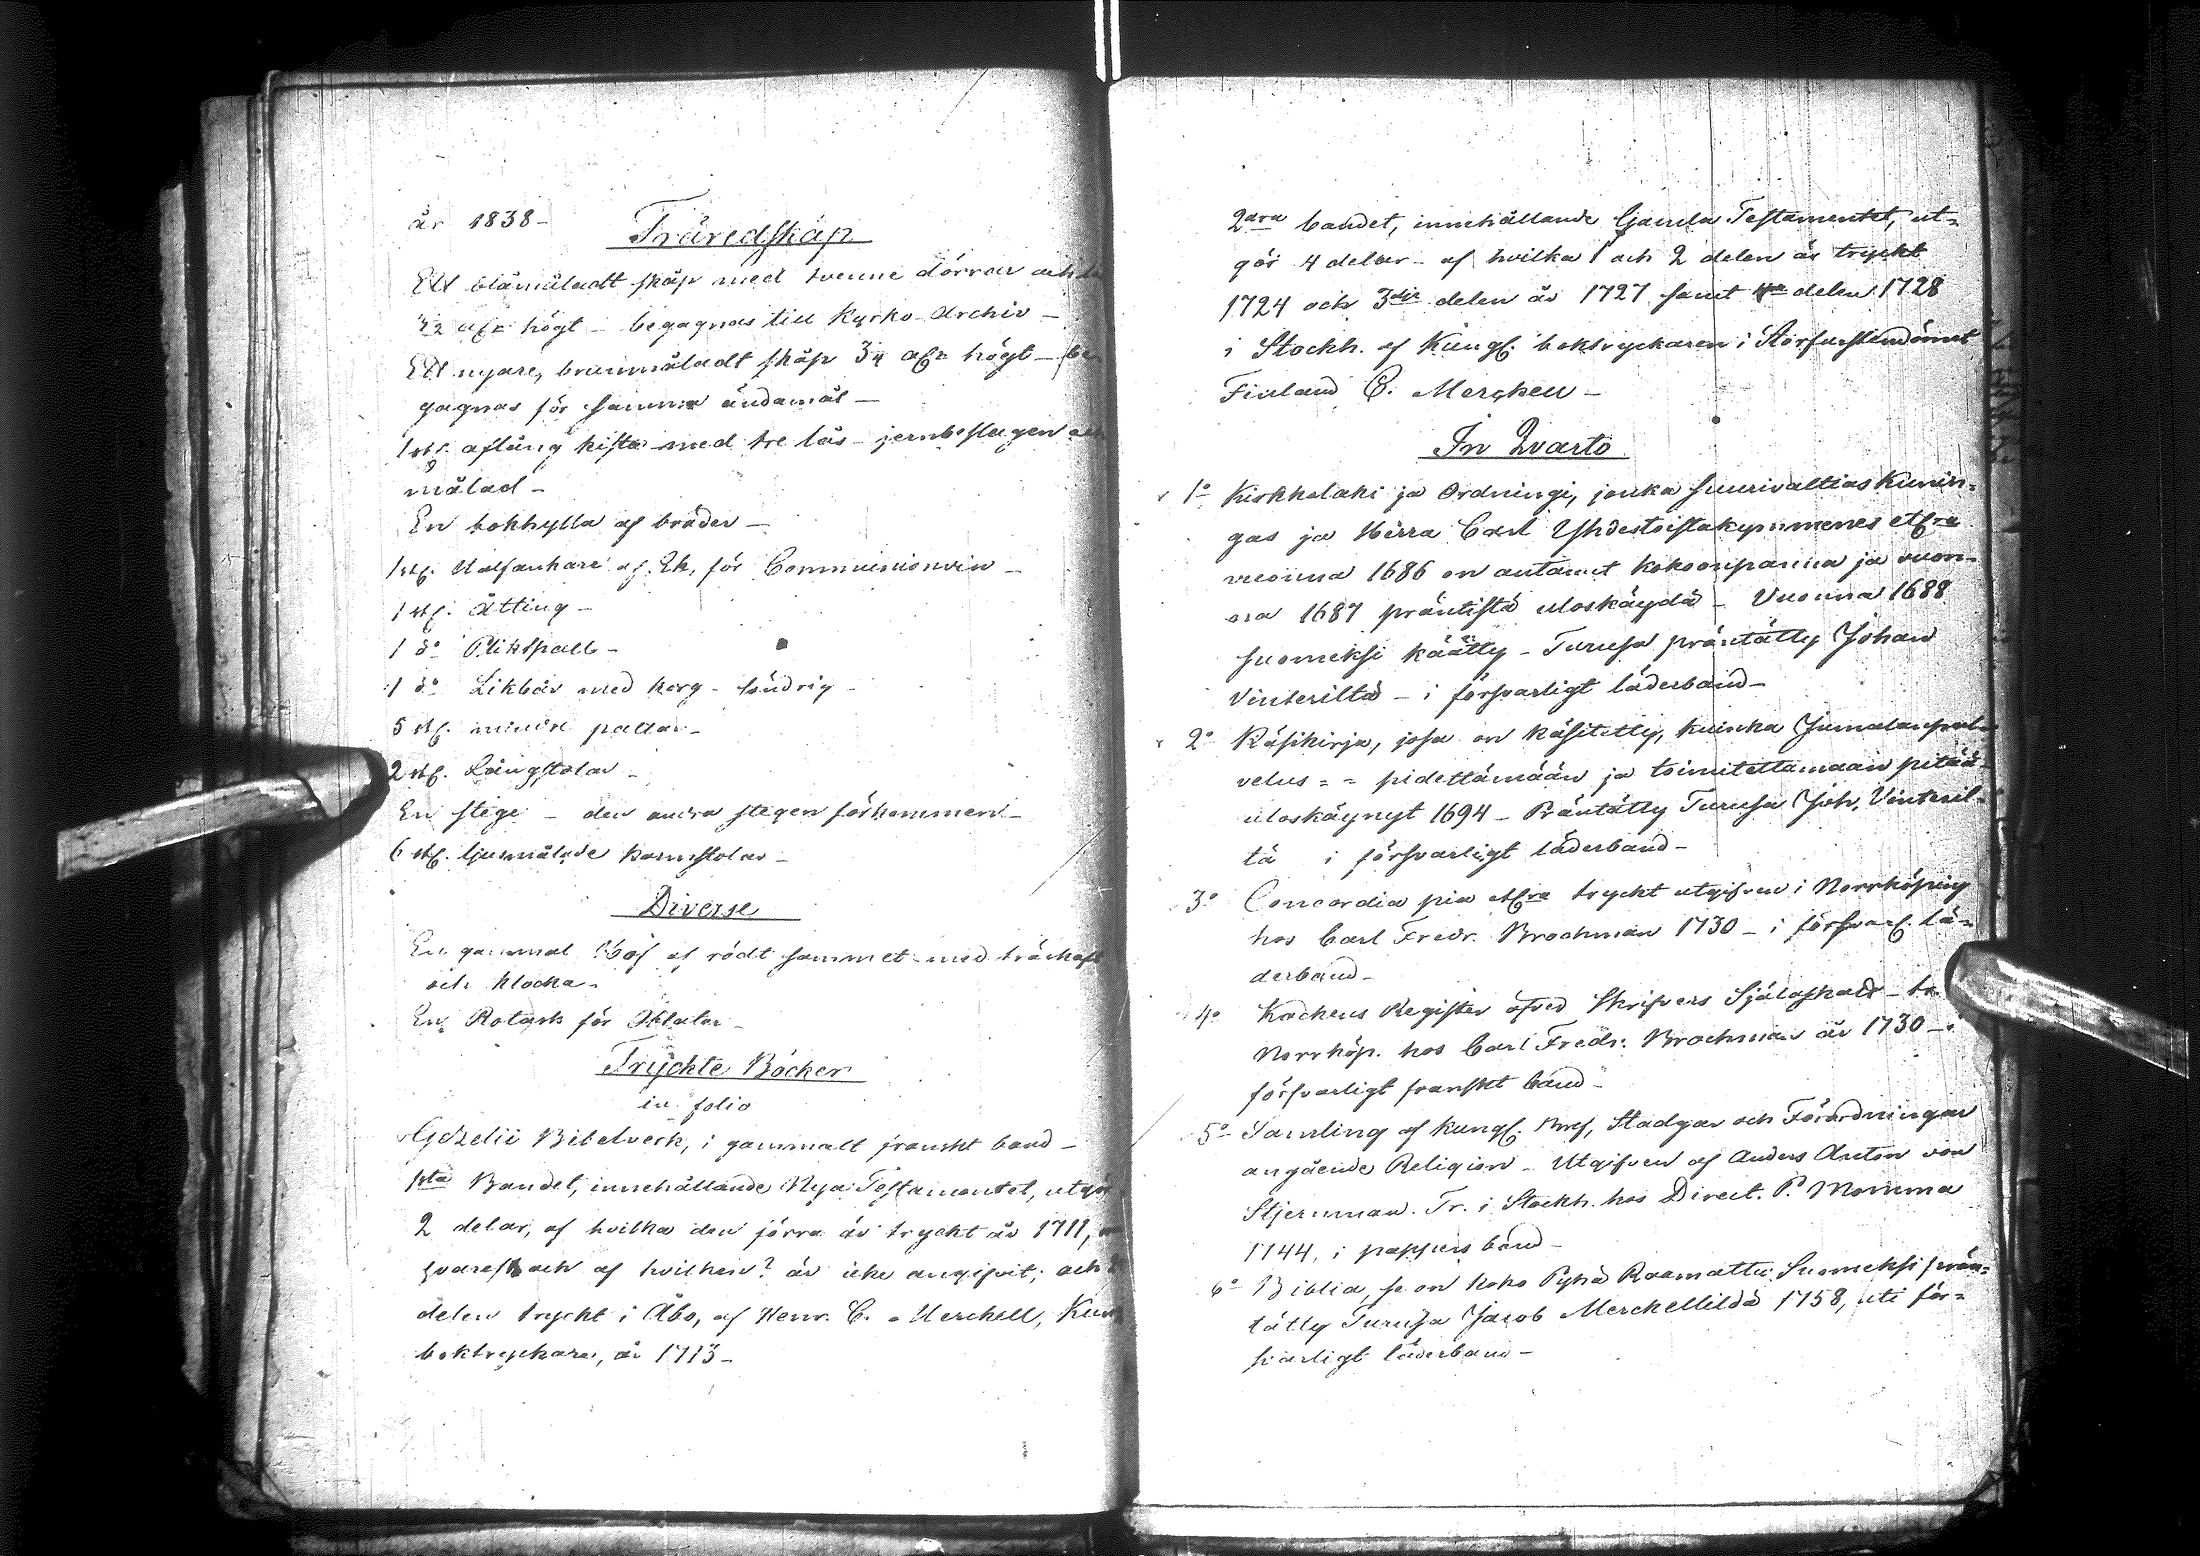 år 1838–
Träredskap
Ett blåmåladt skåp med tvenne dörrar och
högt – begagnas till Kyrko Archiv –
Ett nyare, brunmåladt skåp 3¼ aln högt – be
gagnas för samma ändamål –
1 st. aflång kista med tre lås – jernbeslagen och
målad –
En bokhylla af bräder –
1 st. Halfankare af Ek, för Communionvin –
1 st. Åtting –
1 do Pliktpall –
1 do Likbår med korg – söndrig –
5 st. mindre pallar –
2 st. Långstolar –
En stege – den andra stegen förkommen –
6 st. ljusmålade karmstolar –
Diverse
En gammal Håf af rödt sammet med träskaft
och klocka –
En Rotask för Oblater –
Tryckte Böcker
in folio
Gezelii Bibelverk, i gammalt franskt band –
1sta Bandet, innehållande Nya Testamentet, utgör
2 delar, af hvilka den förra är tryckt år 1711,
hvarest och af hvilken? är icke angifvit; och
delen tryckt i Åbo, af Henr. C. Merckell, Kungl
boktryckare, år 1713 –
2dra bandet, innehållande Gamla Testamentet, ut=
gör 4 delar – af hvilka 1 och 2 delen är tryckt
1724 och 3dje delen år 1727 samt 4de delen 1728
i Stockh. af Kungl. boktryckaren i Storfurstendömet
Finland C. Merckell –
In Qvarto
1o Kirkkolaki ja Ordningi, jonka suurivaltias Kunin=
gas ja Herra Carl Yhdestoistakymmenes etc:ra
vuonna 1686 on antanut kokoonpanna ja vuon=
na 1687 präntistä uloskäydä – Vuonna 1688
suomeksi käätty – Turusa präntätty Johan
Vinterildä – i försvarligt läderband –
2o Käsikirja, josa on käsitetty, kuinka Jumalanpal=
velus = = pidettämään ja toimitettamaan pitää
uloskäynyt 1694 – Präntätty Turusa Joh. Vinteril=
tä i försvarligt läderband –
3o Concordia pia etc:ra tryckt utgifven i Norrköping
hos Carl Fredr. Brochman 1730 – i försvarl. lä=
derband –
4o Register öfver Skrifvers Själaskatt – tr.
Norrköp. hos Carl Fredr. Brochman år 1730 – i
försvarligt franskt band –
5o Samling af Kungl. Bref, Stadgar och Förordningar
angående Religion – Utgifven af Anders Anton von
Stjernman. Tr. i Stockh. hos Direct. P. Momma
1744, i pappers band –
6o Biblia, se on koko Pyhä Raamattu Suomeksi prän=
tätty Turusa Jacob Merckellildä 1758, uti för=
svarligt läderband –